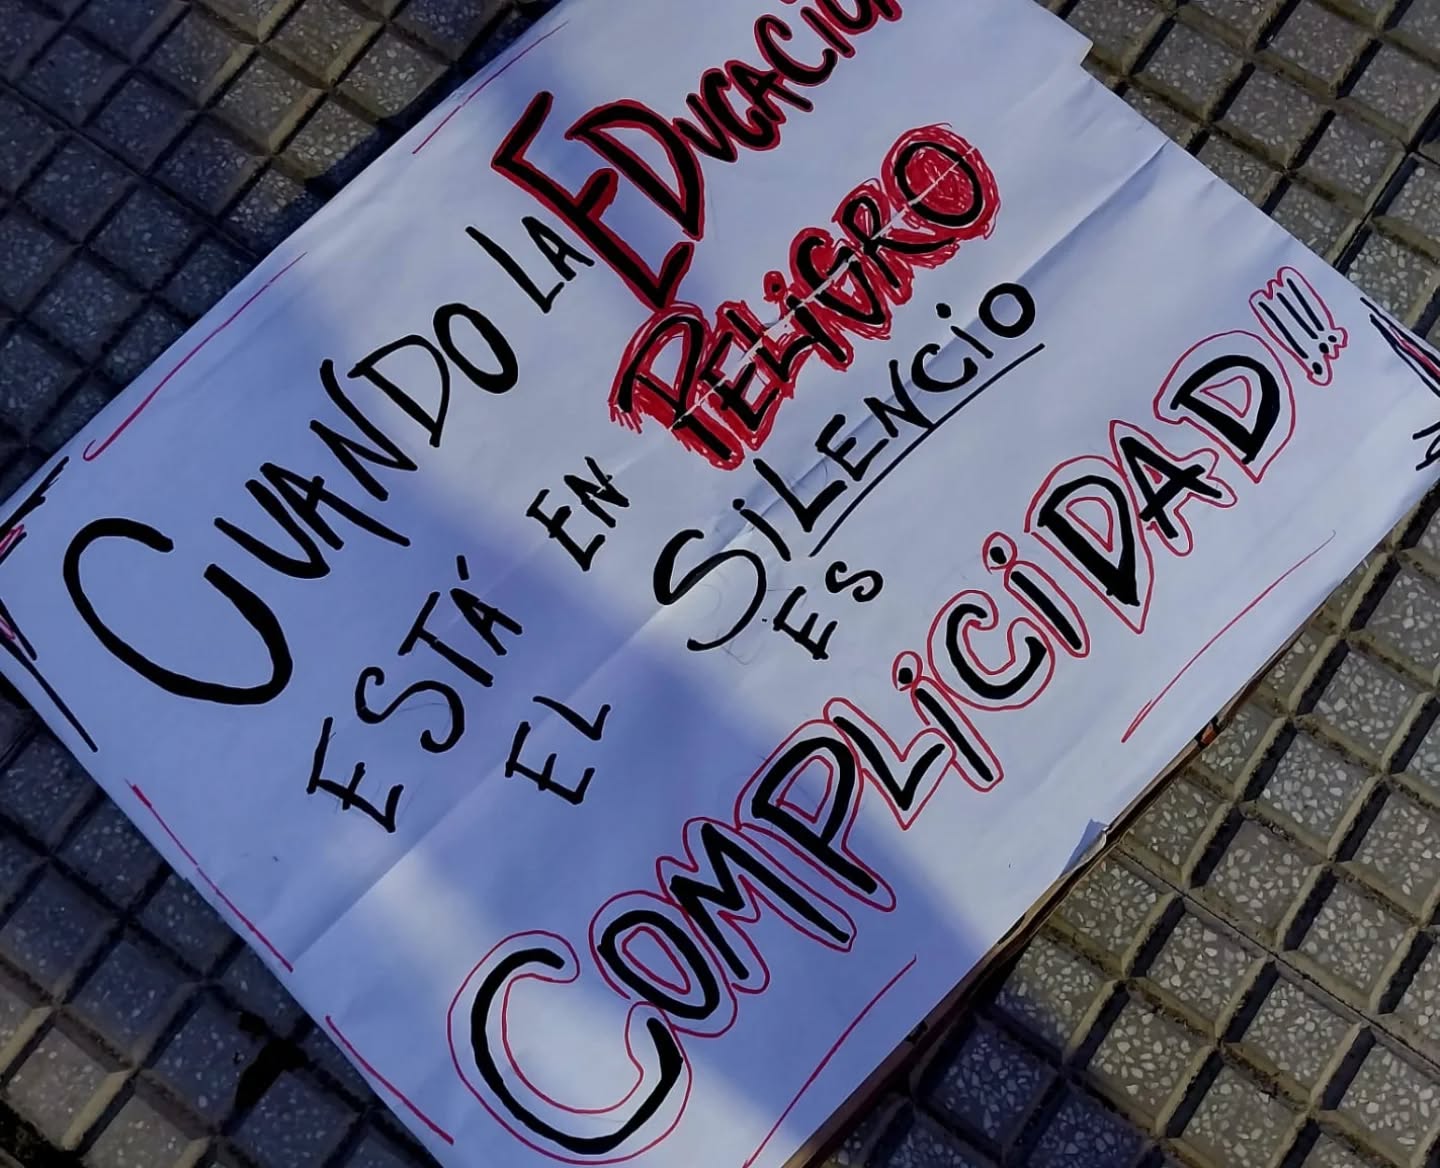 CUANDO LA EDUCACIÓN
ESTÁ EN PELIGRO
EL SiLENCiO
ES
COMPLiCiDAD!!!